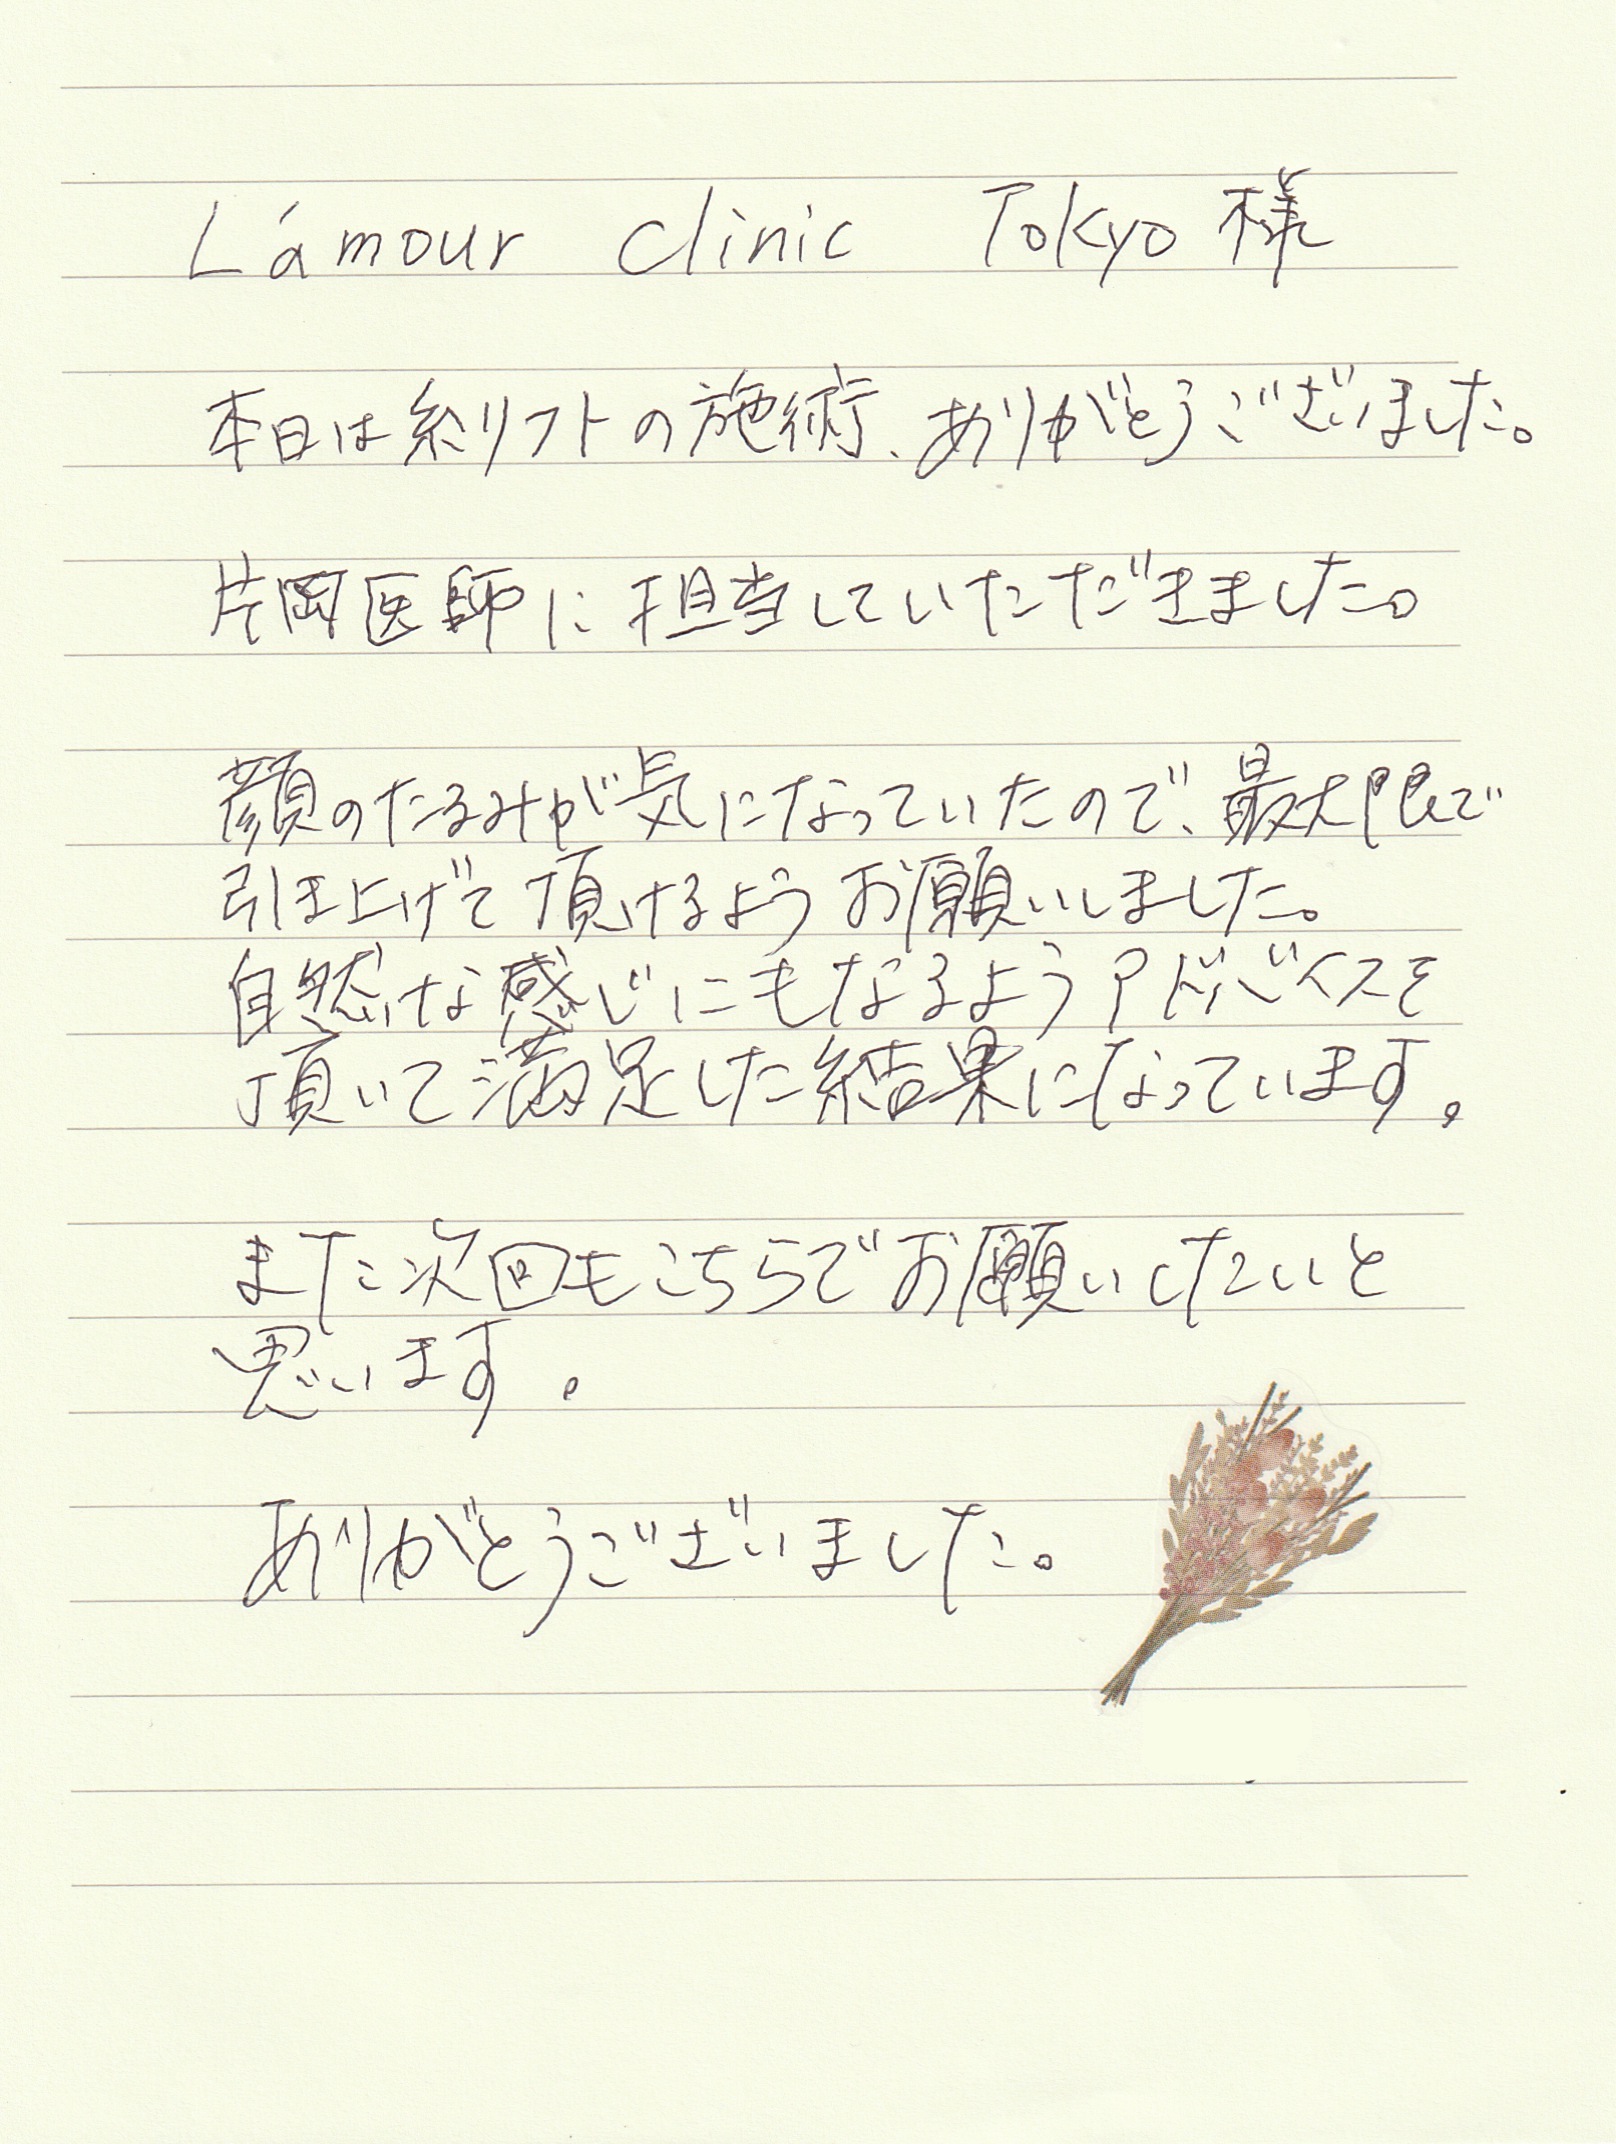 L'amour clinic Tokyo 様
本日は糸リフトの施術、ありがとうございました。
片岡医師に担当していただきました。
顔のたるみが気になっていたので、最大限で
引き上げて頂けるようお願いしました。
自然な感じにもなるようアドバイスを
頂いて満足した結果になっています。
また次回もこちらでお願いしたいと
思います。
ありがとうございました。